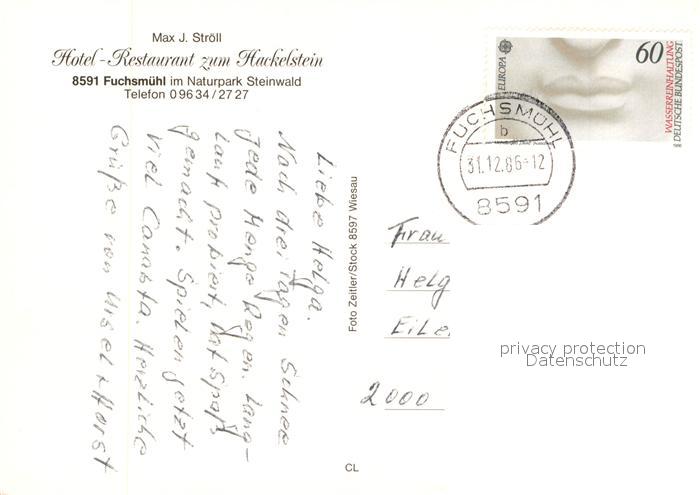 Max J. Ströll
Hotel-Restaurant zum Hackelstein
8591 Fuchsmühl im Naturpark Steinwald
Telefon 0 96 34 / 27 27
EUROPA
60
WASSERREINHALTUNG
DEUTSCHE BUNDESPOST
FUCHSMÜHL
b
31.12.86-12
8591
Liebe Helga.
Nach drei Tagen Schnee
Jede Menge Regen. Lang-
lauf probiert, hat Spaß
gemacht. Spielen jetzt
viel Canasta. Herzliche
Grüße von Ursel + Horst
Foto Zeitler/Stock 8597 Wiesau
Frau
Helg
Eile
2000
privacy protection
Datenschutz
CL